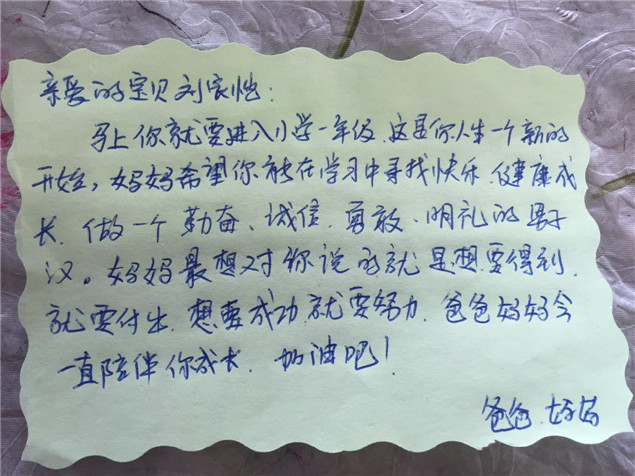 亲爱的宝贝刘宸恺:
马上你就要进入小学一年级.这是你人生一个新的
开始,妈妈希望你能在学习中寻找快乐.健康成
长.做一个勤奋、诚信.勇敢、明礼的男子
汉。妈妈最想对你说的就是想要得到.
就要付出.想要成功.就要努力.爸爸妈妈会
一直陪伴你成长.加油吧!
爸爸.妈妈